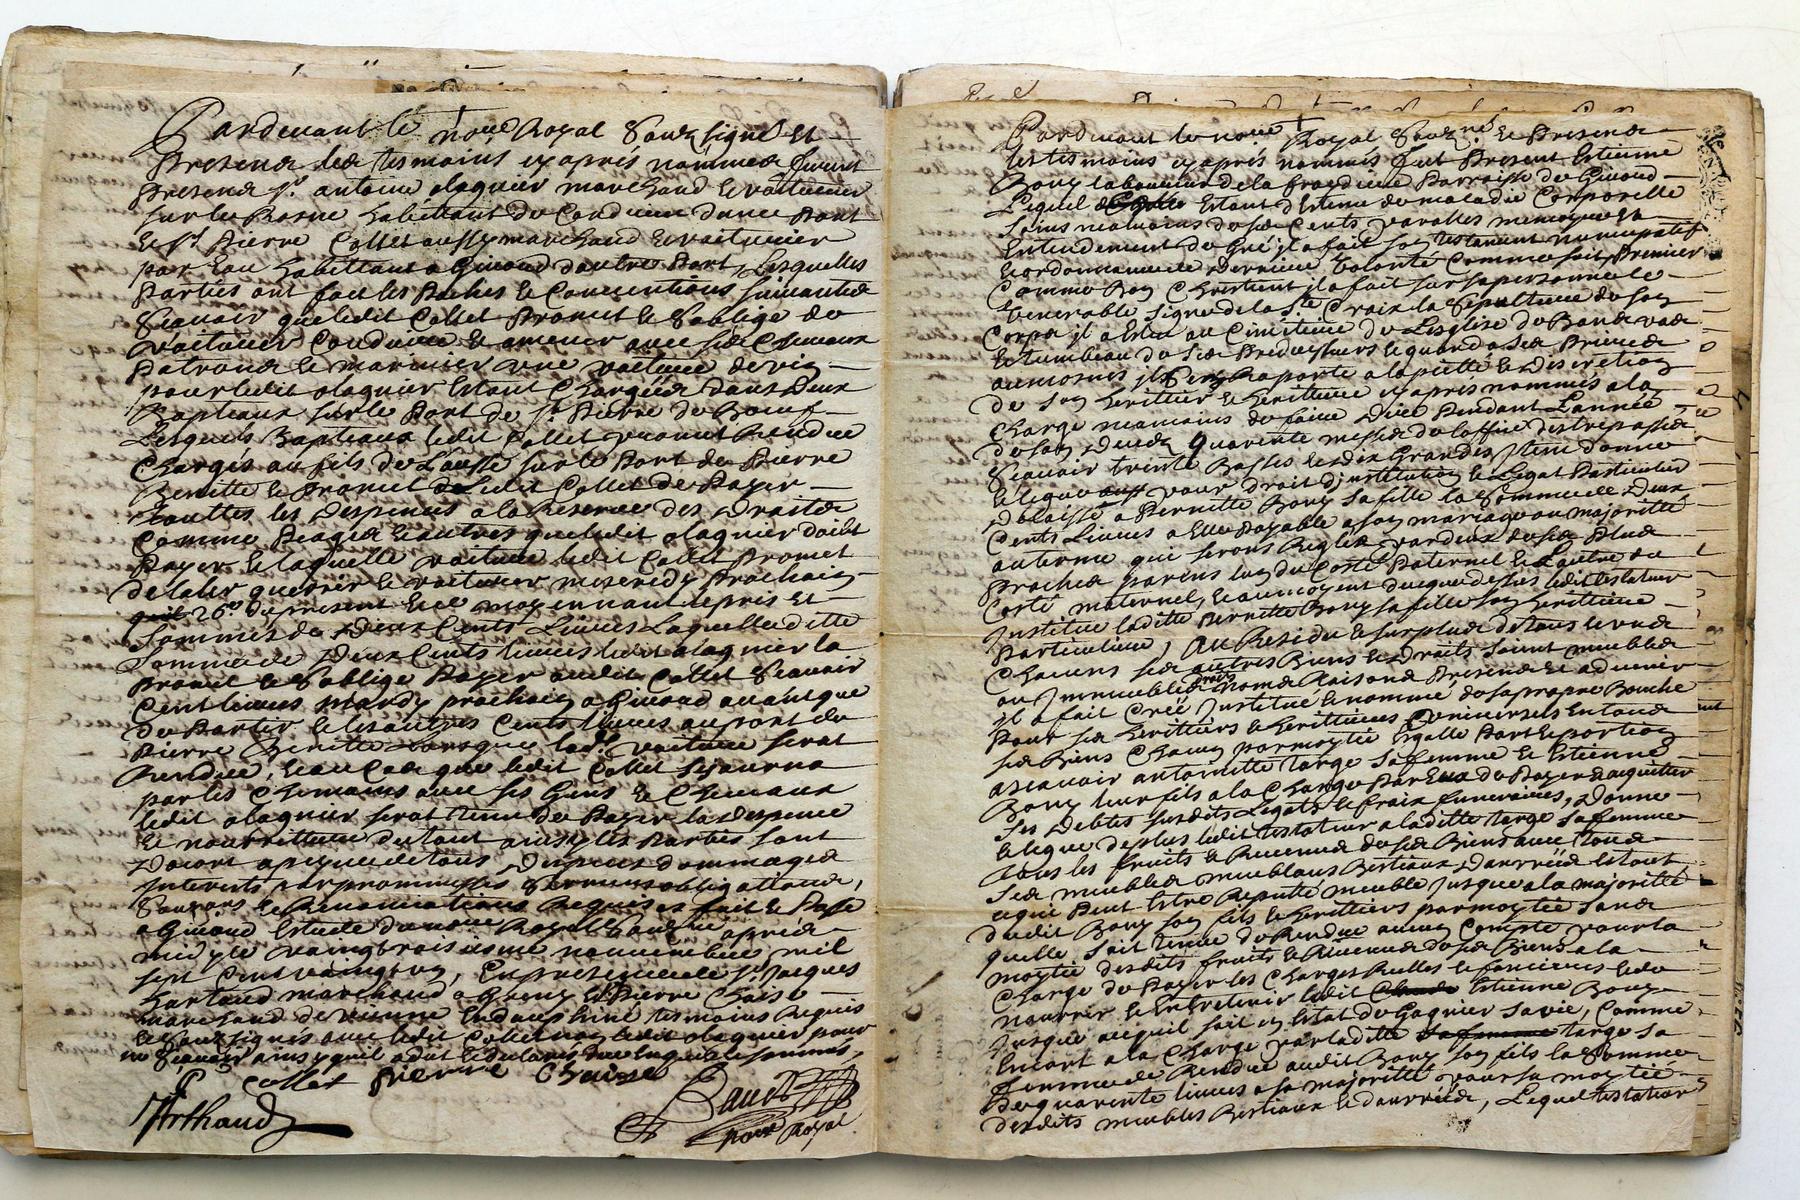 Pardevant le no.re Royal Soubz signé et
Presence des tesmoins cy après nommes furent
Presens Sr. antoine alagnier marchand & voiturier
sur le Rosne habittant de Condrieu dune Part
Et Sr Pierre Collet aussy marchand & voiturier
par Eau habittant a Givord dautre Part, Lesquelles
Parties ont fait les Paches & Conventions suivantes
Scavoir que ledit Collet Promet & Soblige de
voiturer Conduire & amener avec ses Chevaux
Patrons & mariniers une voiture de vin
pour ledit alagnier Estant Chargée dans deux
Bapteaux sur le Port de St. Pierre de Boeuf
Lesquels Bapteaux ledit Collet promet Rendre
Chargés au fils de Leausse sur le Port de Pierre
Benitte & Promet Ledit Collet de Payer
touttes les Despences a la Reserve des Droits
Comme Peages & autres que ledit alagnier doibt
Payer & laquelle voiture ledit Collet Promet
de laler querrir & voiturer mecredy Prochain
26e. du present & ce moyennant le pris et
Sommes de Deux Cents Livres Laquelle ditte
Somme de Deux Cents livres ledit alagnier la
Promet & Soblige Payer audit Collet Scavoir
Cent livres mardy prochain a Givord avant que
de Partir & les autres Cents livres au port de
Pierre Benitte Lorsque lad. voiture serat
Rendue, & au Cas que ledit Collet sejourna
par les Chemains avec ses Gens & Chevaux
ledit alagnier serat tenu de Payer la despence
& nourritture du tout ainsy les Parties sont
Dacort a peyne de tous Despens dommages
Interests par promesses Serments obligations,
& Renonciations Requises fait & Passé
a Givord Estude du no.re Royal Soubzné après
midy le vaingtroisiesme novembre mil
sept Cens vaingt, En presence de Sr. Jacques
marchand a & Pierre Chaise
marchand de vienne En dauphiné tesmoins Requis
& Soubsignés avec ledit Collet non ledit alagnier pour
ne Scavoir ainsy quil a dit & de luares deue Enquis & sommés,
Collet pierre Chaise
Arthaud
no.re Royal
Pardevant le no.re Royal Soubz.né & Presence
les tesmoins cy après nommés fut Present Estienne
Bony laboureur de la Parroisse de Givord
Lequel Estant detenu de maladie Corporelle
sains neamoins de ses Cents Parolles memoyre et
Entendement de Gré il a fait son testament nuncupatif
& ordonnance de Derniere Volonté Comme suit, Premier
Comme Bon Chrestient il a fait sur sa personne le
Venerable Signe de la Ste. Croix la Sepulture de son
Corps il a Esleu au Cimitiere de Lesglise de
& tumbeau de ses Predecesseurs & quand a ses Prieres
aumosnes il sen Raporte a la pietté & discretion
de son heritier & heritiere cy apres nommés a la
Charge neamoins de faire Dire Pendant Lannée
de son Deces quarente messes de loffice des trepassés
Scavoir trente Basses & dix Grandes, Item donne
& legue pour droit dinstitution & Legat Particulier
delaissé a Pernette Bony sa fille la Somme de Deux
Cents Livres a Elle Payable a son mariage ou majorité
au terme qui serons Reglés par deux de ses Plus
Proches parens lun du Costé Paternel & Lautre du
Costé maternel, & au moyent duquel dessus ledit testateur
Institue laditte Pernette Bony sa fille son heritiere
Particuliere, Au Residu & surplus de tous & uns
Chacuns ses autres Biens & Droits soient meubles
ou Immeubles Droits noms Raisons Presens & advenir
il a fait Creé Institué & nommé de sa propre Bouche
Pour ses heritiers & heritieres Universels En tous
ses Biens Chacun par moytié Egalle Part & portion
ascavoir antoinette targe sa femme & Estienne
Bony leur fils a la Charge Par Eux de Payer & acquitter
ses Debtes susdits Legats & fraix funeraires, Donne
& legue de plus ledit testateur a laditte targe sa femme
tous les fruits & Revenus de ses Biens avec tous
ses meubles meublans Bestiaux Danrrées & tout
ce qui Peut Estre Reputté meuble Jusque a la majorité
dudit Bony son fils & heritiers par moytié sans
quelle soit tenue de Rendre aucun Compte pour la
moytié desdits fruits & Revenus de ses Biens a la
Charge de Payer les Charges Reelles & foncieres & de
nourrir & Entretenir ledit Estienne Bony
Jusque a ce quil soit en Estat de Gagnier sa vie, Comme
Encort a la Charge par laditte targe sa
femme de Rendre audit Bony son fils la Somme
de quarente livres a sa majorité pour sa moytié
desdits meubles Bestiaux & danrrées, Lequel testateur